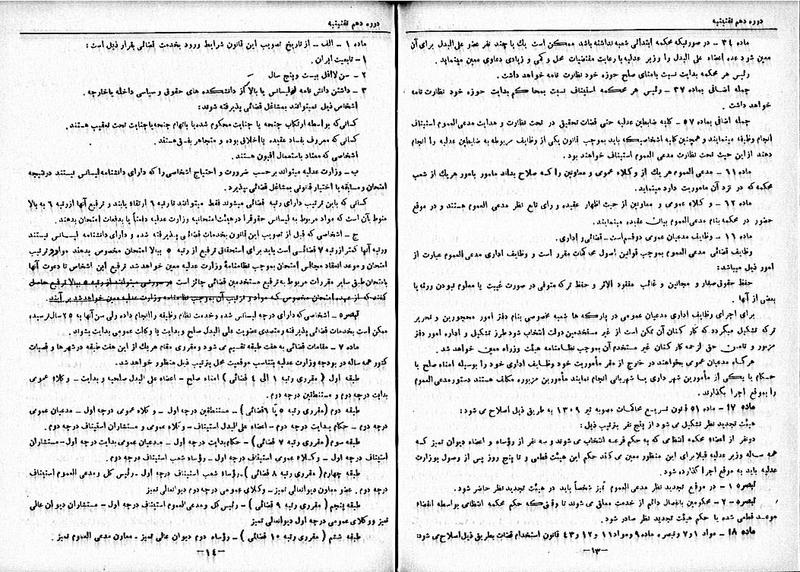 دوره دهم تقنینیه
ماده ۳۴ - در صورتیکه محکمه ابتدائی شعبه نداشته باشد ممکن است یک یا چند نفر عضو علی البدل برای آن
معین شود عده اعضاء علی البدل را وزیر عدلیه با رعایت مقتضیات محل و کمی و زیادی دعاوی معین مینماید.
رئیس هر محکمه بدایت نسبت بامنای صلح حوزه خود نظارت خواهد داشت.
جمله اضافی بماده ۳۷ - رئیس هر محکمه استیناف نسبت بمحاکم بدایت حوزه خود نظارت تامه
خواهد داشت.
جمله اضافی بماده ۵۷ - کلیه ضابطین عدلیه حتی قضات تحقیق در تحت نظارت و هدایت مدعی العموم استیناف
انجام وظیفه مینمایند و همچنین کلیه اشخاصیکه باید بموجب قانون یکی از وظایف مربوطه به ضابطین عدلیه را انجام
دهند از این حیث تحت نظارت مدعی العموم استیناف خواهند بود.
ماده ۱۱ - مدعی العموم هر یک از وکلاء عمومی و معاونین را که صلاح بداند مامور بامور هر یک از شعب
محکمه که در نزد آن ماموریت دارد مینماید.
ماده ۱۲ - وکلاء عمومی و معاونین از حیث اظهار عقیده و رای تابع نظر مدعی العموم هستند و در موقع
حضور در محکمه بنام مدعی العموم بیان عقیده مینمایند.
وظایف مدعیان عمومی دو قسم است - قضائی و اداری.
وظایف قضائی مدعی العموم بموجب قوانین اصول محاکمات مقرر است و وظایف اداری مدعی العموم عبارت از
امور ذیل میباشد:
حفظ حقوق صغار و مجانین و غائب مفقود الاثر و حفظ ترکه متوفی در صورت غیبت یا معلوم نبودن ورثه یا
بعض از آنها.
برای اجرای وظایف اداری مدعیان عمومی در پارکه ها شعبه مخصوصی بنام دفتر امور محجورین و تحریر
ترکه تشکیل میگردد که کارکنان آن ممکن است از غیر مستخدمین دولت انتخاب شود طرز تشکیل و اداره امور دفتر
مزبور و تامین حق الزحمه کارکنان غیر مستخدم آن بموجب نظامنامه هیئت وزراء معین خواهد شد.
هرگاه مدعیان عمومی بخواهند در خارج از مقر مأموریت خود وظایف اداری خود را بوسیله امناء صلح یا
حکام یا یکی از مأمورین شهرداری یا شهربانی انجام نمایند مأمورین مزبوره مکلف هستند دستور مدعی العموم
را بموقع اجرا بگذارند.
ماده ۱۷ - ماده ۵۱ قانون تسریع محاکمات مصوبه تیر ۱۳۰۹ به طریق ذیل اصلاح می شود:
هیئت تجدید نظر تشکیل می شود از پنج نفر بترتیب ذیل:
دو نفر از اعضاء محکمه انتظامی که به حکم قرعه انتخاب می شوند و سه نفر از رؤساء و اعضاء دیوان تمیز که
همه ساله وزیر عدلیه قبلا برای این منظور معین می کند حکم این هیئت قطعی و تا پنج روز پس از وصول بوزارت
عدلیه باید به موقع اجرا گذارده شود.
تبصره ۱ - در موقع تجدید نظر مدعی العموم تمیز شخصاً باید در هیئت تجدید نظر حاضر شود.
تبصره ۲ - محکومین بانفصال دائم از خدمت معلق می شوند تا وقتیکه حکم محکمه انتظامی بواسطه انقضاء
موعد قطعی شده یا حکم هیئت تجدید نظر صادر شود.
ماده ۱۸ - مواد ۱ و ۷ و تبصره ماده ۹ و مواد ۱۱ و ۱۲ و ۴۳ قانون استخدام قضات بطریق ذیل اصلاح می شود:
-۱۳-
دوره دهم تقنینیه
ماده ۱ - الف - از تاریخ تصویب این قانون شرایط ورود بخدمت قضائی بقرار ذیل است:
۱ - تابعیت ایران.
۲ - سن لااقل بیست و پنج سال
۳ - داشتن دانش نامه لیسانس یا بالاتر از دانشکده های حقوق و سیاسی داخله یا خارجه.
اشخاص ذیل نمیتوانند بمشاغل قضائی پذیرفته شوند:
کسانی که بواسطه ارتکاب جنحه یا جنایت محکوم شده یا باتهام جنحه یا جنایت تحت تعقیب هستند.
کسانی که معروف بفساد عقیده یا اخلاق بوده و متجاهر بفسق هستند.
اشخاصی که معتاد باستعمال افیون هستند.
ب - وزارت عدلیه میتواند بر حسب ضرورت و احتیاج اشخاصی را که دارای دانشنامه لیسانس نیستند در نتیجه
امتحان و مسابقه با اختیار قانونی بمشاغل قضائی بپذیرد.
کسانی که باین ترتیب دارای رتبه قضائی میشوند فقط میتوانند تا رتبه ۶ ارتقاء یابند و ترفیع آنها از رتبه ۶ به بالا
منوط بآن است که مواد مربوط به لیسانس حقوق را در هیئت امتحانیه وزارت عدلیه دفعتاً یا بدفعات امتحان بدهند.
ج - اشخاصی که قبل از تصویب این قانون بخدمات قضائی پذیرفته شده و دارای دانشنامه لیسانس نیستند
رتبه آنها کمتر از رتبه ۷ قضائی است باید برای استحقاق ترفیع از رتبه ۵ ببالا امتحان مخصوص بدهند مواد و ترتیب
امتحان و موعد انعقاد مجالس امتحان بموجب نظامنامه وزارت عدلیه معین خواهد شد ترفیع این اشخاص تا دعوت آنها
بامتحان طبق سایر مقررات مربوط به ترفیع مستخدمین قضائی جائز است
تبصره - اشخاصی که دارای درجه لیسانس شده و خدمت نظام وظیفه را انجام داده ولی سن آنها به ۲۵ سال نرسیده
ممکن است بخدمات قضائی پذیرفته و متصدی عضویت علی البدل صلح و بدایت یا وکالت عمومی بدایت بشوند.
ماده ۷ - مقامات قضائی به هفت طبقه تقسیم می شود و مقرری مقام هر یک از این هفت طبقه در شهرها و قصبات
کشور همه ساله در بودجه وزارت عدلیه بتناسب موقعیت محل بترتیب ذیل منظور خواهد شد.
طبقه اول (مقرری رتبه ۱ الی ۴ قضائی) امناء صلح - اعضاء علی البدل صلحیه و بدایت - وکلاء عمومی
بدایت درجه دوم و مستنطقین درجه دوم.
طبقه دوم (مقرری رتبه ۵ یا ۶ قضائی) - مستنطقین درجه اول - وکلاء عمومی درجه اول - مدعیان عمومی
درجه دوم - حکام بدایت درجه دوم - اعضاء علی البدل استیناف - وکلاء عمومی و مستشاران استیناف درجه دوم.
طبقه سوم (مقرری رتبه ۷ قضائی) - حکام بدایت درجه اول - مدعیان عمومی بدایت درجه اول - مستشاران
استیناف درجه اول - وکلاء عمومی استیناف درجه اول - رؤساء شعب استیناف درجه دوم.
طبقه چهارم (مقرری رتبه ۸ قضائی) - رؤساء شعب استیناف درجه اول - رئیس کل و مدعی العموم استیناف
درجه دوم - عضو معاون دیوانعالی تمیز - وکلای عمومی درجه دوم دیوانعالی تمیز
طبقه پنجم (مقرری رتبه ۹ قضائی) - رئیس کل و مدعی العموم استیناف درجه اول - مستشاران دیوان عالی
تمیز و وکلای عمومی درجه اول دیوانعالی تمیز
طبقه ششم (مقرری رتبه ۱۰ قضائی) - رؤساء دوم دیوان عالی تمیز - معاون مدعی العموم تمیز.
-۱۴-